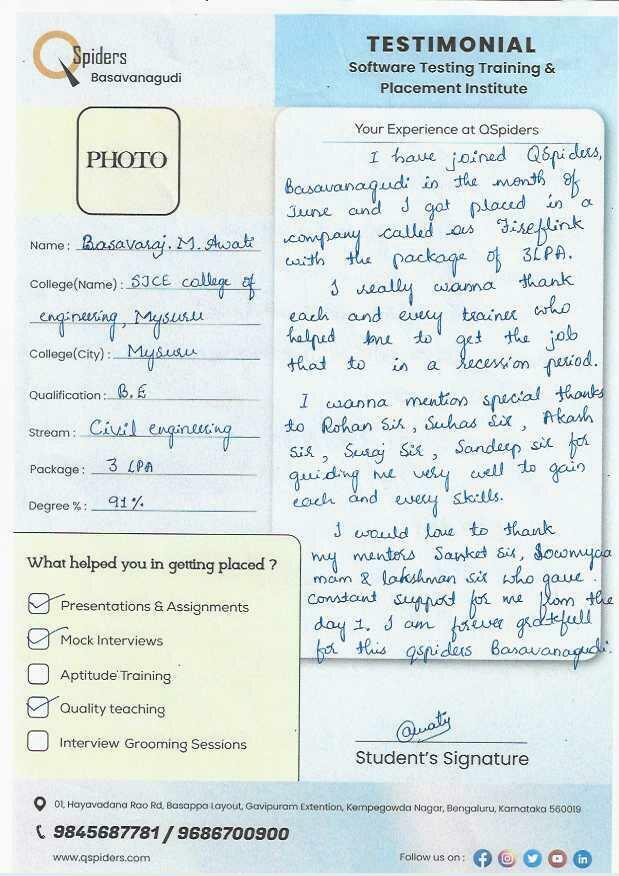 QSpiders
Basavanagudi
TESTIMONIAL
Software Testing Training &
Placement Institute
PHOTO
Name : Basavaraj. M. Awati
College(Name) : SJCE college of
engineering, Mysuru
College(City) : Mysuru
Qualification : B.E
Stream : Civil engineering
Package : 3 LPA
Degree % : 91%
Your Experience at QSpiders
I have joined QSpiders,
Basavanagudi in the month of
June and I got placed in a
company called as Fireflink
with the package of 3LPA.
I really wanna thank
each and every trainer who
helped me to get the job
that to in a recession period.
I wanna mention special thanks
to Rohan Sir, Suhas Sir, Akash
Sir, Suraj Sir, Sandeep sir for
guiding me very well to gain
each and every skills.
I would love to thank
my mentors Sanket Sir, Sowmyaa
mam & lakshman sir who gave
constant support for me from the
day 1. I am forever gratefull
for this qspiders Basavanagudi.
What helped you in getting placed ?
Presentations & Assignments
Mock Interviews
Aptitude Training
Quality teaching
Interview Grooming Sessions
Awaty
Student's Signature
01, Hayavadana Rao Rd, Basappa Layout, Gavipuram Extention, Kempegowda Nagar, Bengaluru, Karnataka 560019
9845687781 / 9686700900
www.qspiders.com
Follow us on :